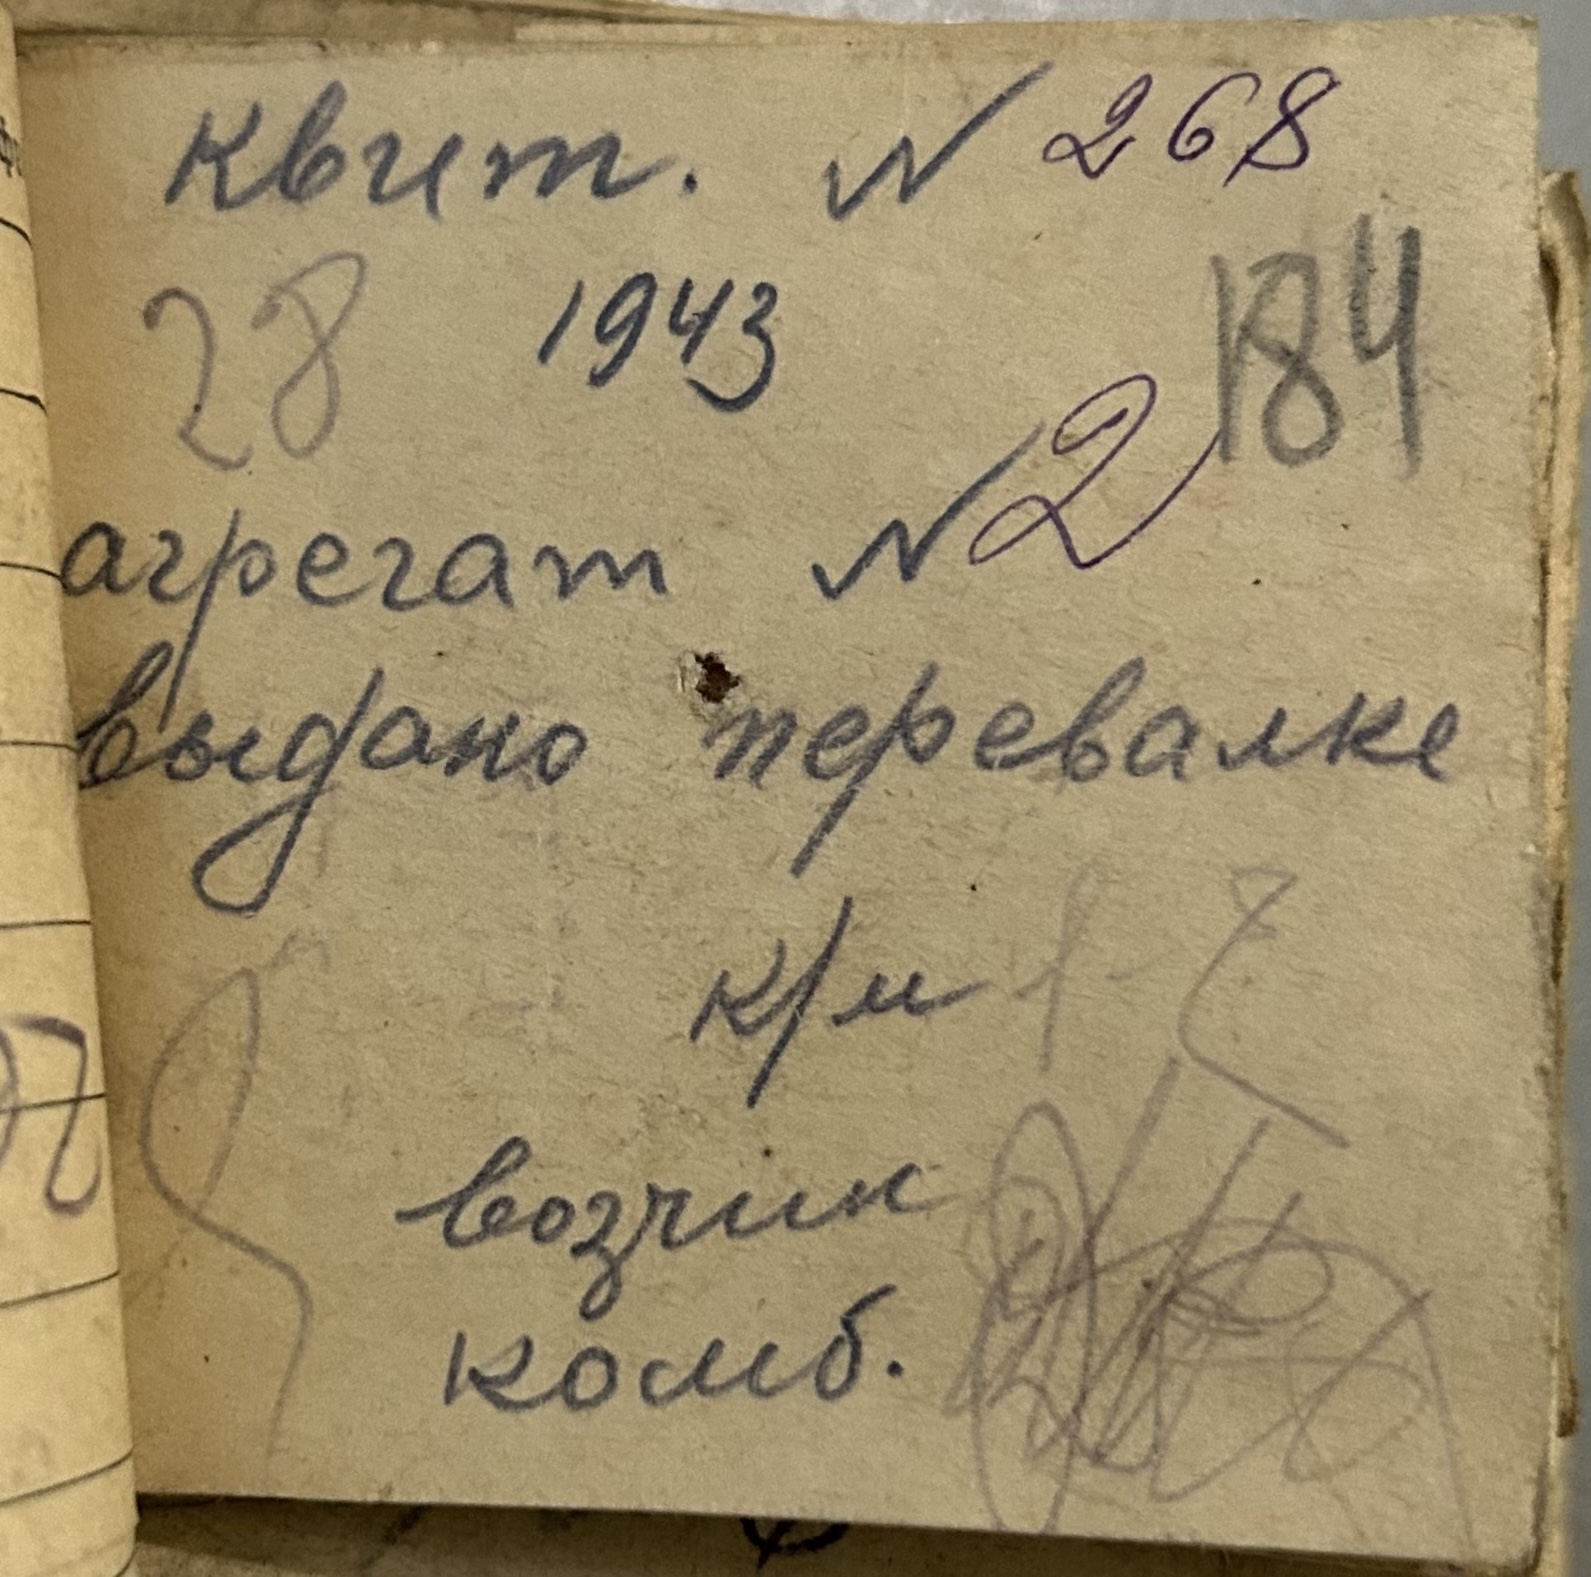 квит. № 268
28 1943 184
агрегат № 2
выдано перевалке
к/м
возчик
комб.